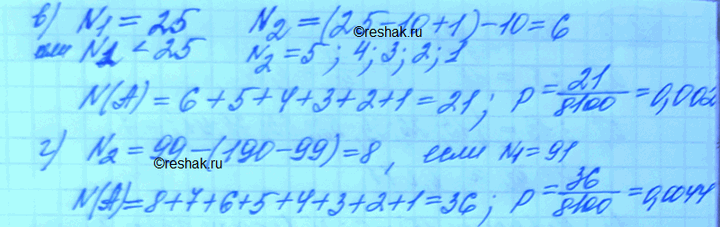 в) N₁ = 25 N₂ = (25-10+1)-10 = 6
©reshak.ru
если N₁ < 25 N₂ = 5; 4; 3; 2; 1
N(A) = 6+5+4+3+2+1 = 21; P = 21/8100 = 0,002
г) N₂ = 99-(190-99) = 8, если N₁ = 91
©reshak.ru
N(A) = 8+7+6+5+4+3+2+1 = 36; P = 36/8100 = 0,0044